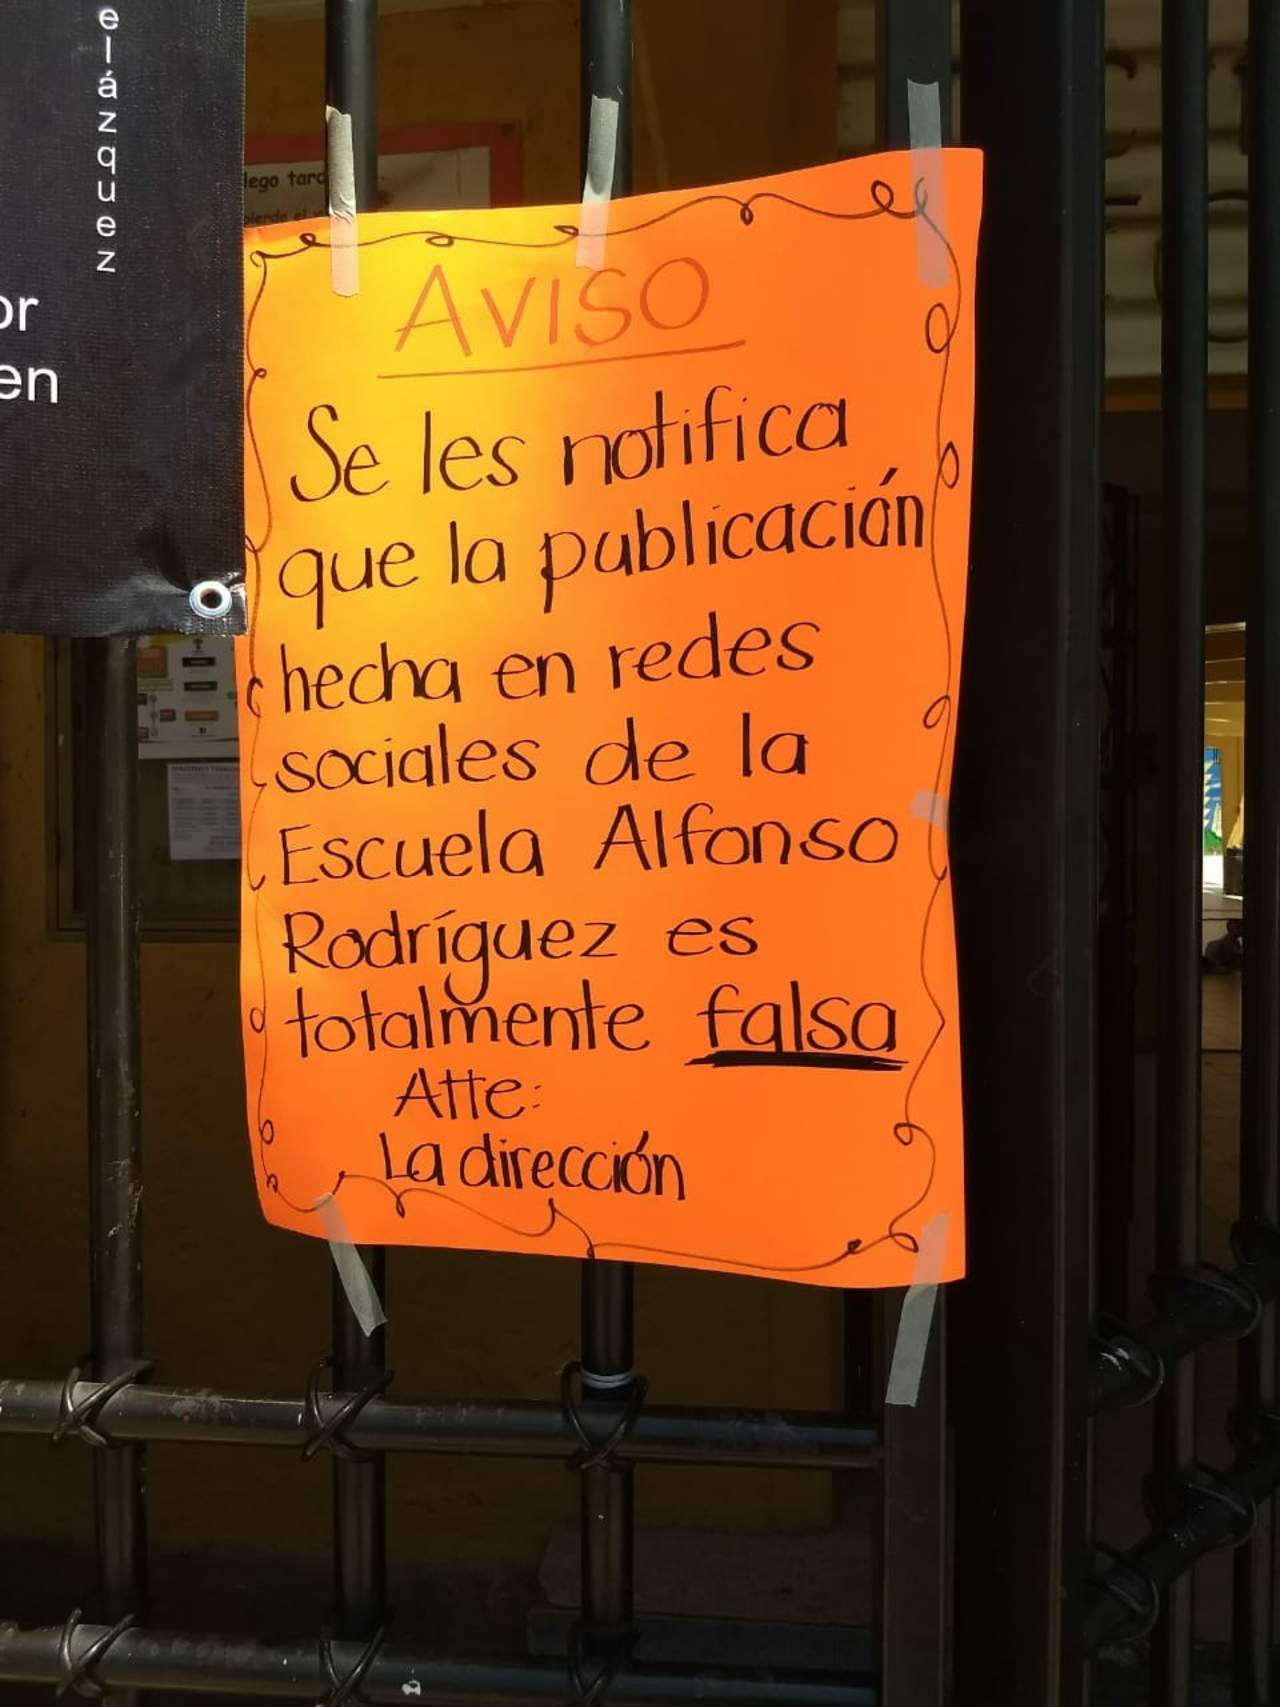 elázquez
or
en
lego tard
pierde el
AVISO
Se les notifica
que la publicación
hecha en redes
sociales de la
Escuela Alfonso
Rodríguez es
totalmente falsa
Atte:
La dirección